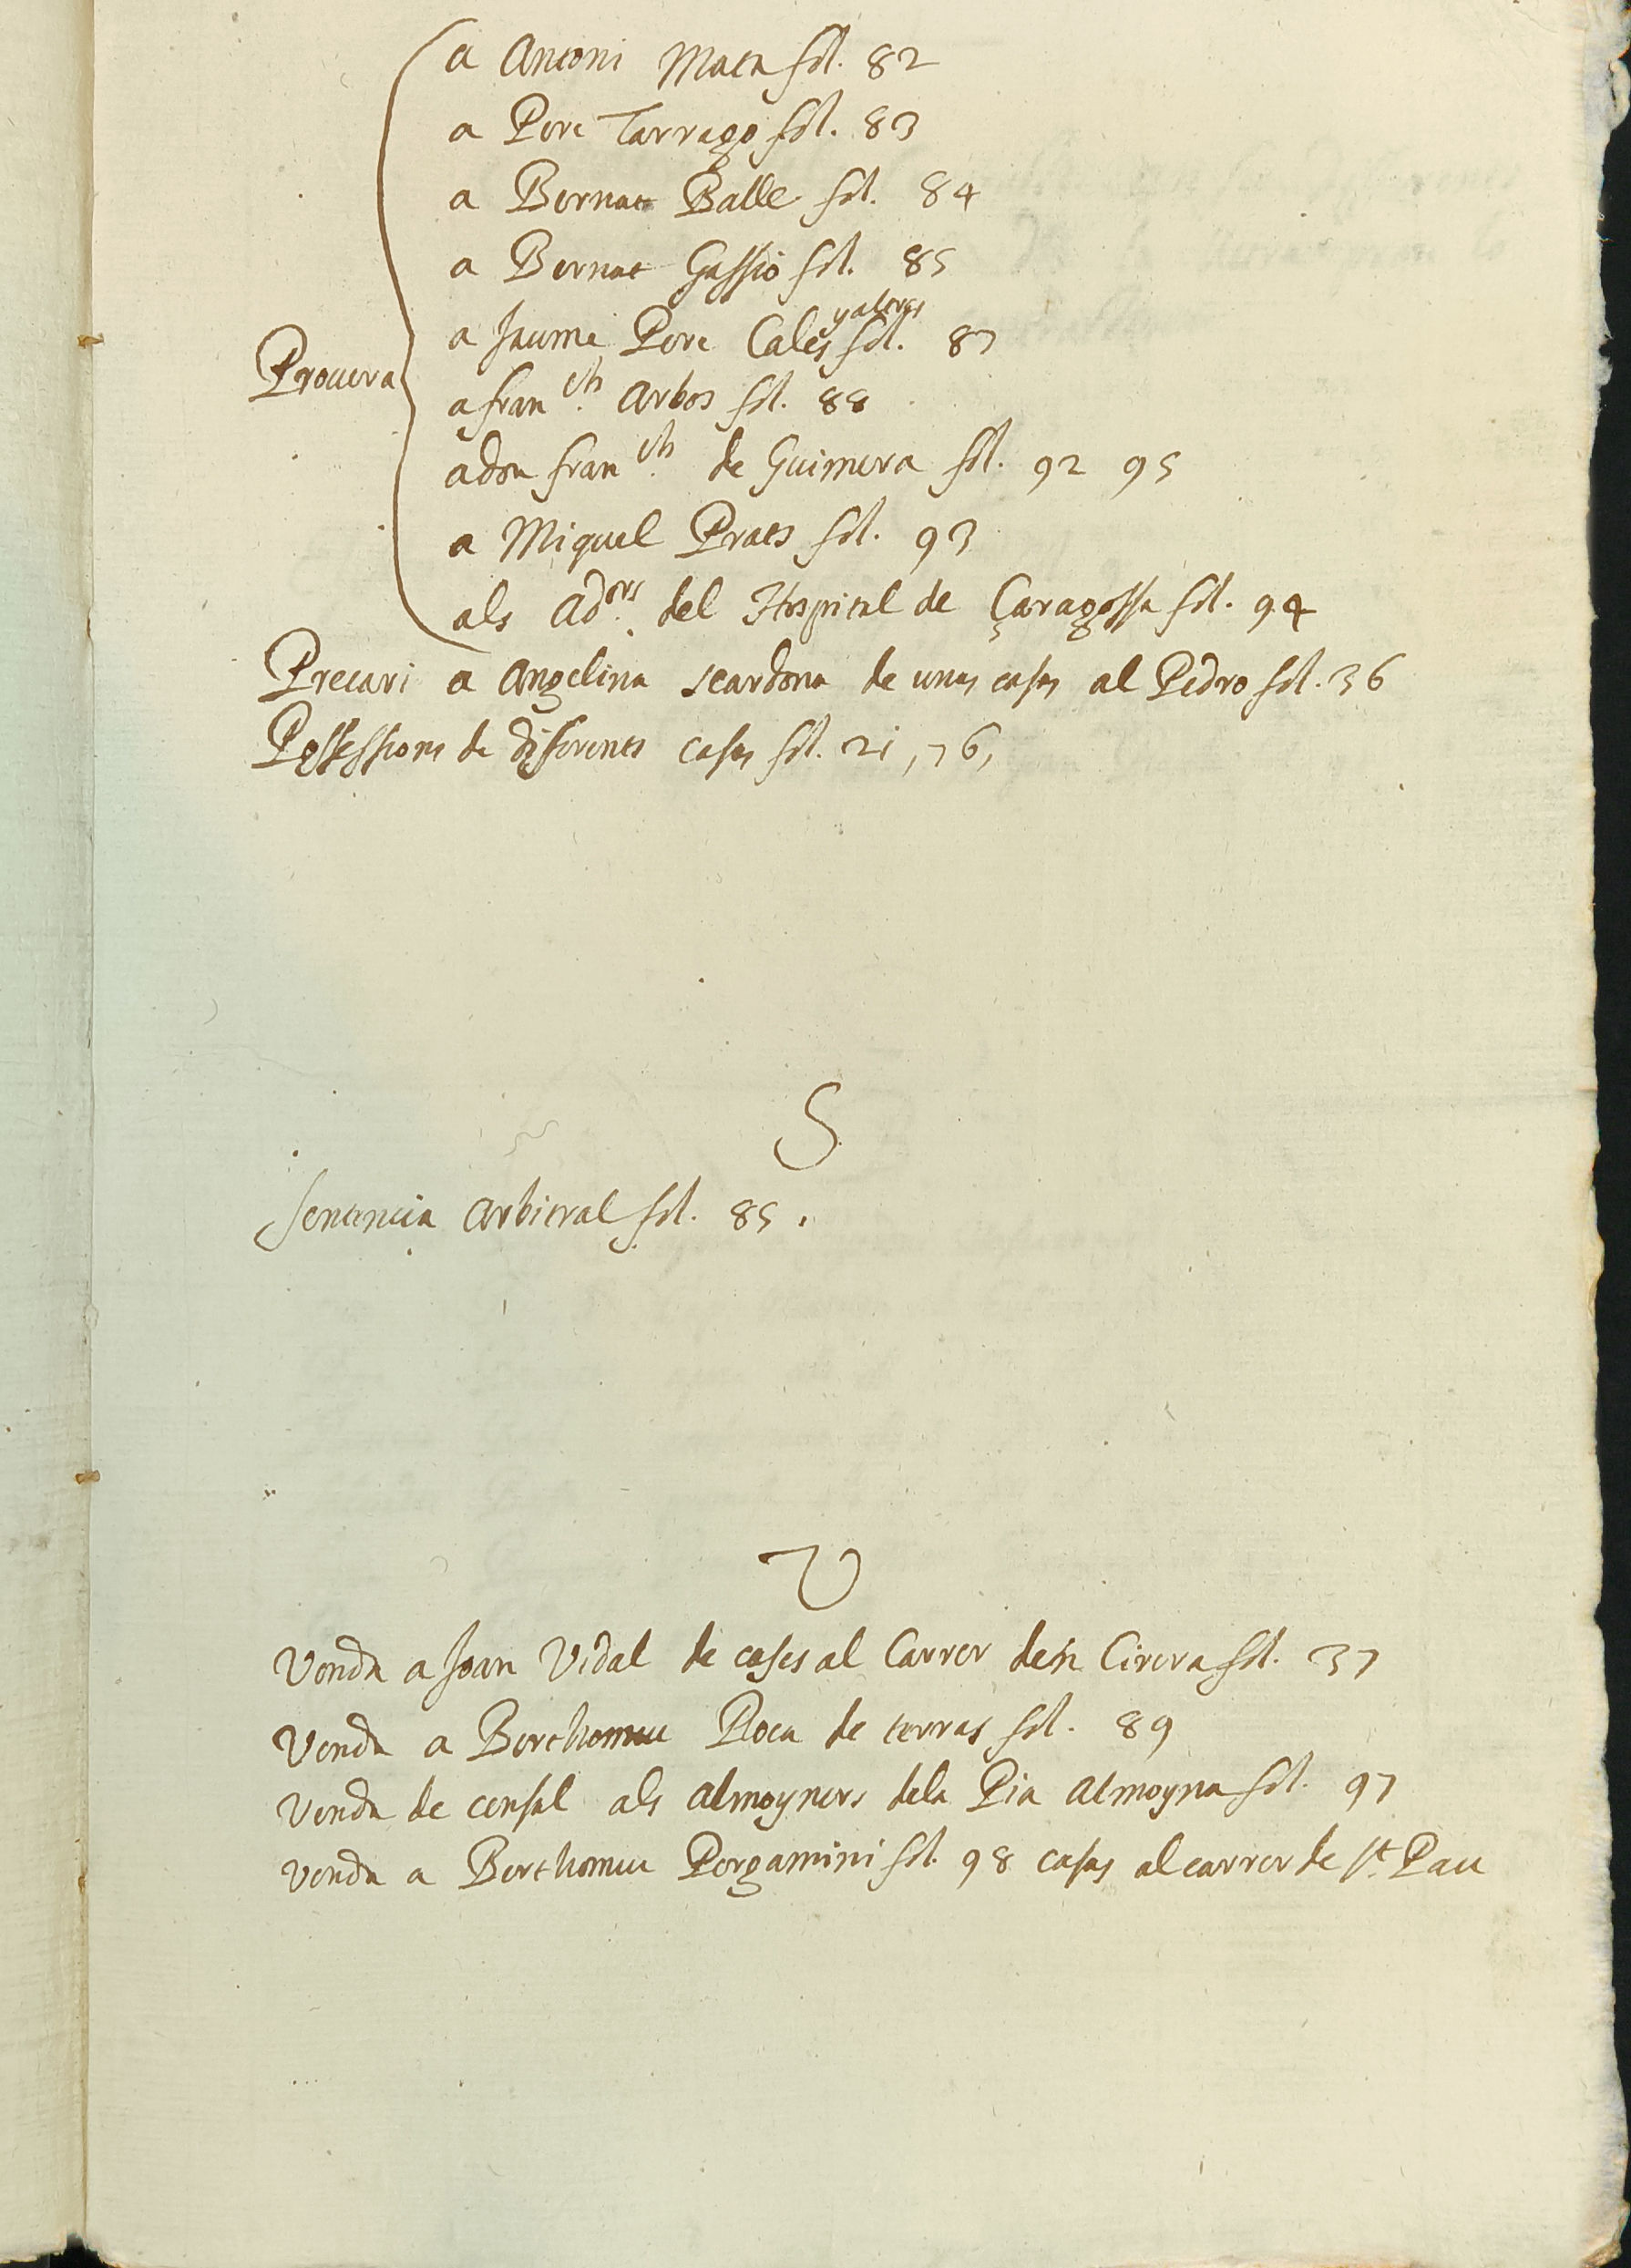 a Antoni Mata fol. 82
a Pere Tarrago fol. 83
a Bernat Balle fol. 84
a Bernat Gassio fol. 85
a Jaume Pere Cales y altres fol. 87
Procura
a fran.ch Arbos fol. 88
a don fran.ch de Guimera fol. 92 95
a Miquel Prats fol. 93
als Ad.ors del Hospital de Çaragossa fol. 94
Precari a Angelina scardona de unas casas al Pedro fol. 36
Possessions de diferents casas fol. 21, 76,
S
Sentencia Arbitral fol. 85.
V
Venda a Joan Vidal de cases al Carrer den Cirera fol. 37
Venda a Berthomeu Roca de terras fol. 89
Venda de censal als Almoyners dela Pia Almoyna fol. 97
Venda a Berthomeu Pergamini fol. 98 casas al carrer de st. Pau